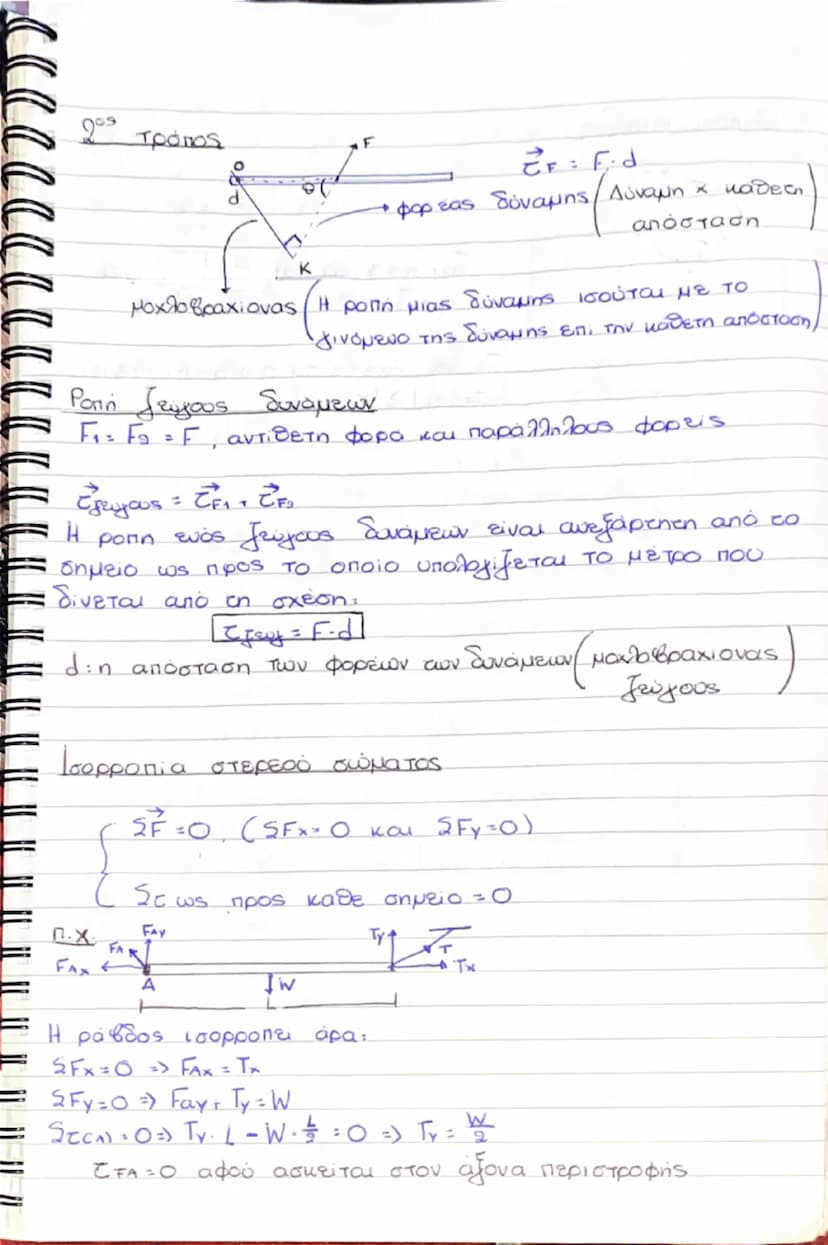 2ος τρόπος
F
O
θ
d
K
τ⃗F = F·d
φορέας δύναμης (Δύναμη × κάθετη
απόσταση)
μοχλοβραχίονας (Η ροπή μιας δύναμης ισούται με το
γινόμενο της δύναμης επι την κάθετη απόσταση)
Ροπή ζεύγους δυνάμεων
F1 = F2 = F, αντίθετη φορά και παράλληλους φορείς
τ⃗ζεύγους = τ⃗F1 + τ⃗F2
Η ροπη ενός ζεύγους δυνάμεων είναι ανεξάρτητη από το
σημείο ως προς το οποίο υπολογίζεται το μέτρο που
δίνεται από τη σχέση:
τζευγ = F·d
d: η απόσταση των φορέων των δυνάμεων (μοχλοβραχίονας
ζεύγους)
Ισορροπία στερεού σώματος
ΣF⃗ = 0, (ΣFx = 0 και ΣFy = 0)
Στ ως προς καθε σημείο = 0
Π.χ.
FAy
FA
FAx
A
W
L
Ty
T
Tx
Η ράβδος ισορροπεί άρα:
ΣFx = 0 => FAx = Tx
ΣFy = 0 => FAy + Ty = W
Στ(Α) = 0 => Ty · L - W · L/2 = 0 => Ty = W/2
τFA = 0 αφού ασκείται στον άξονα περιστροφής